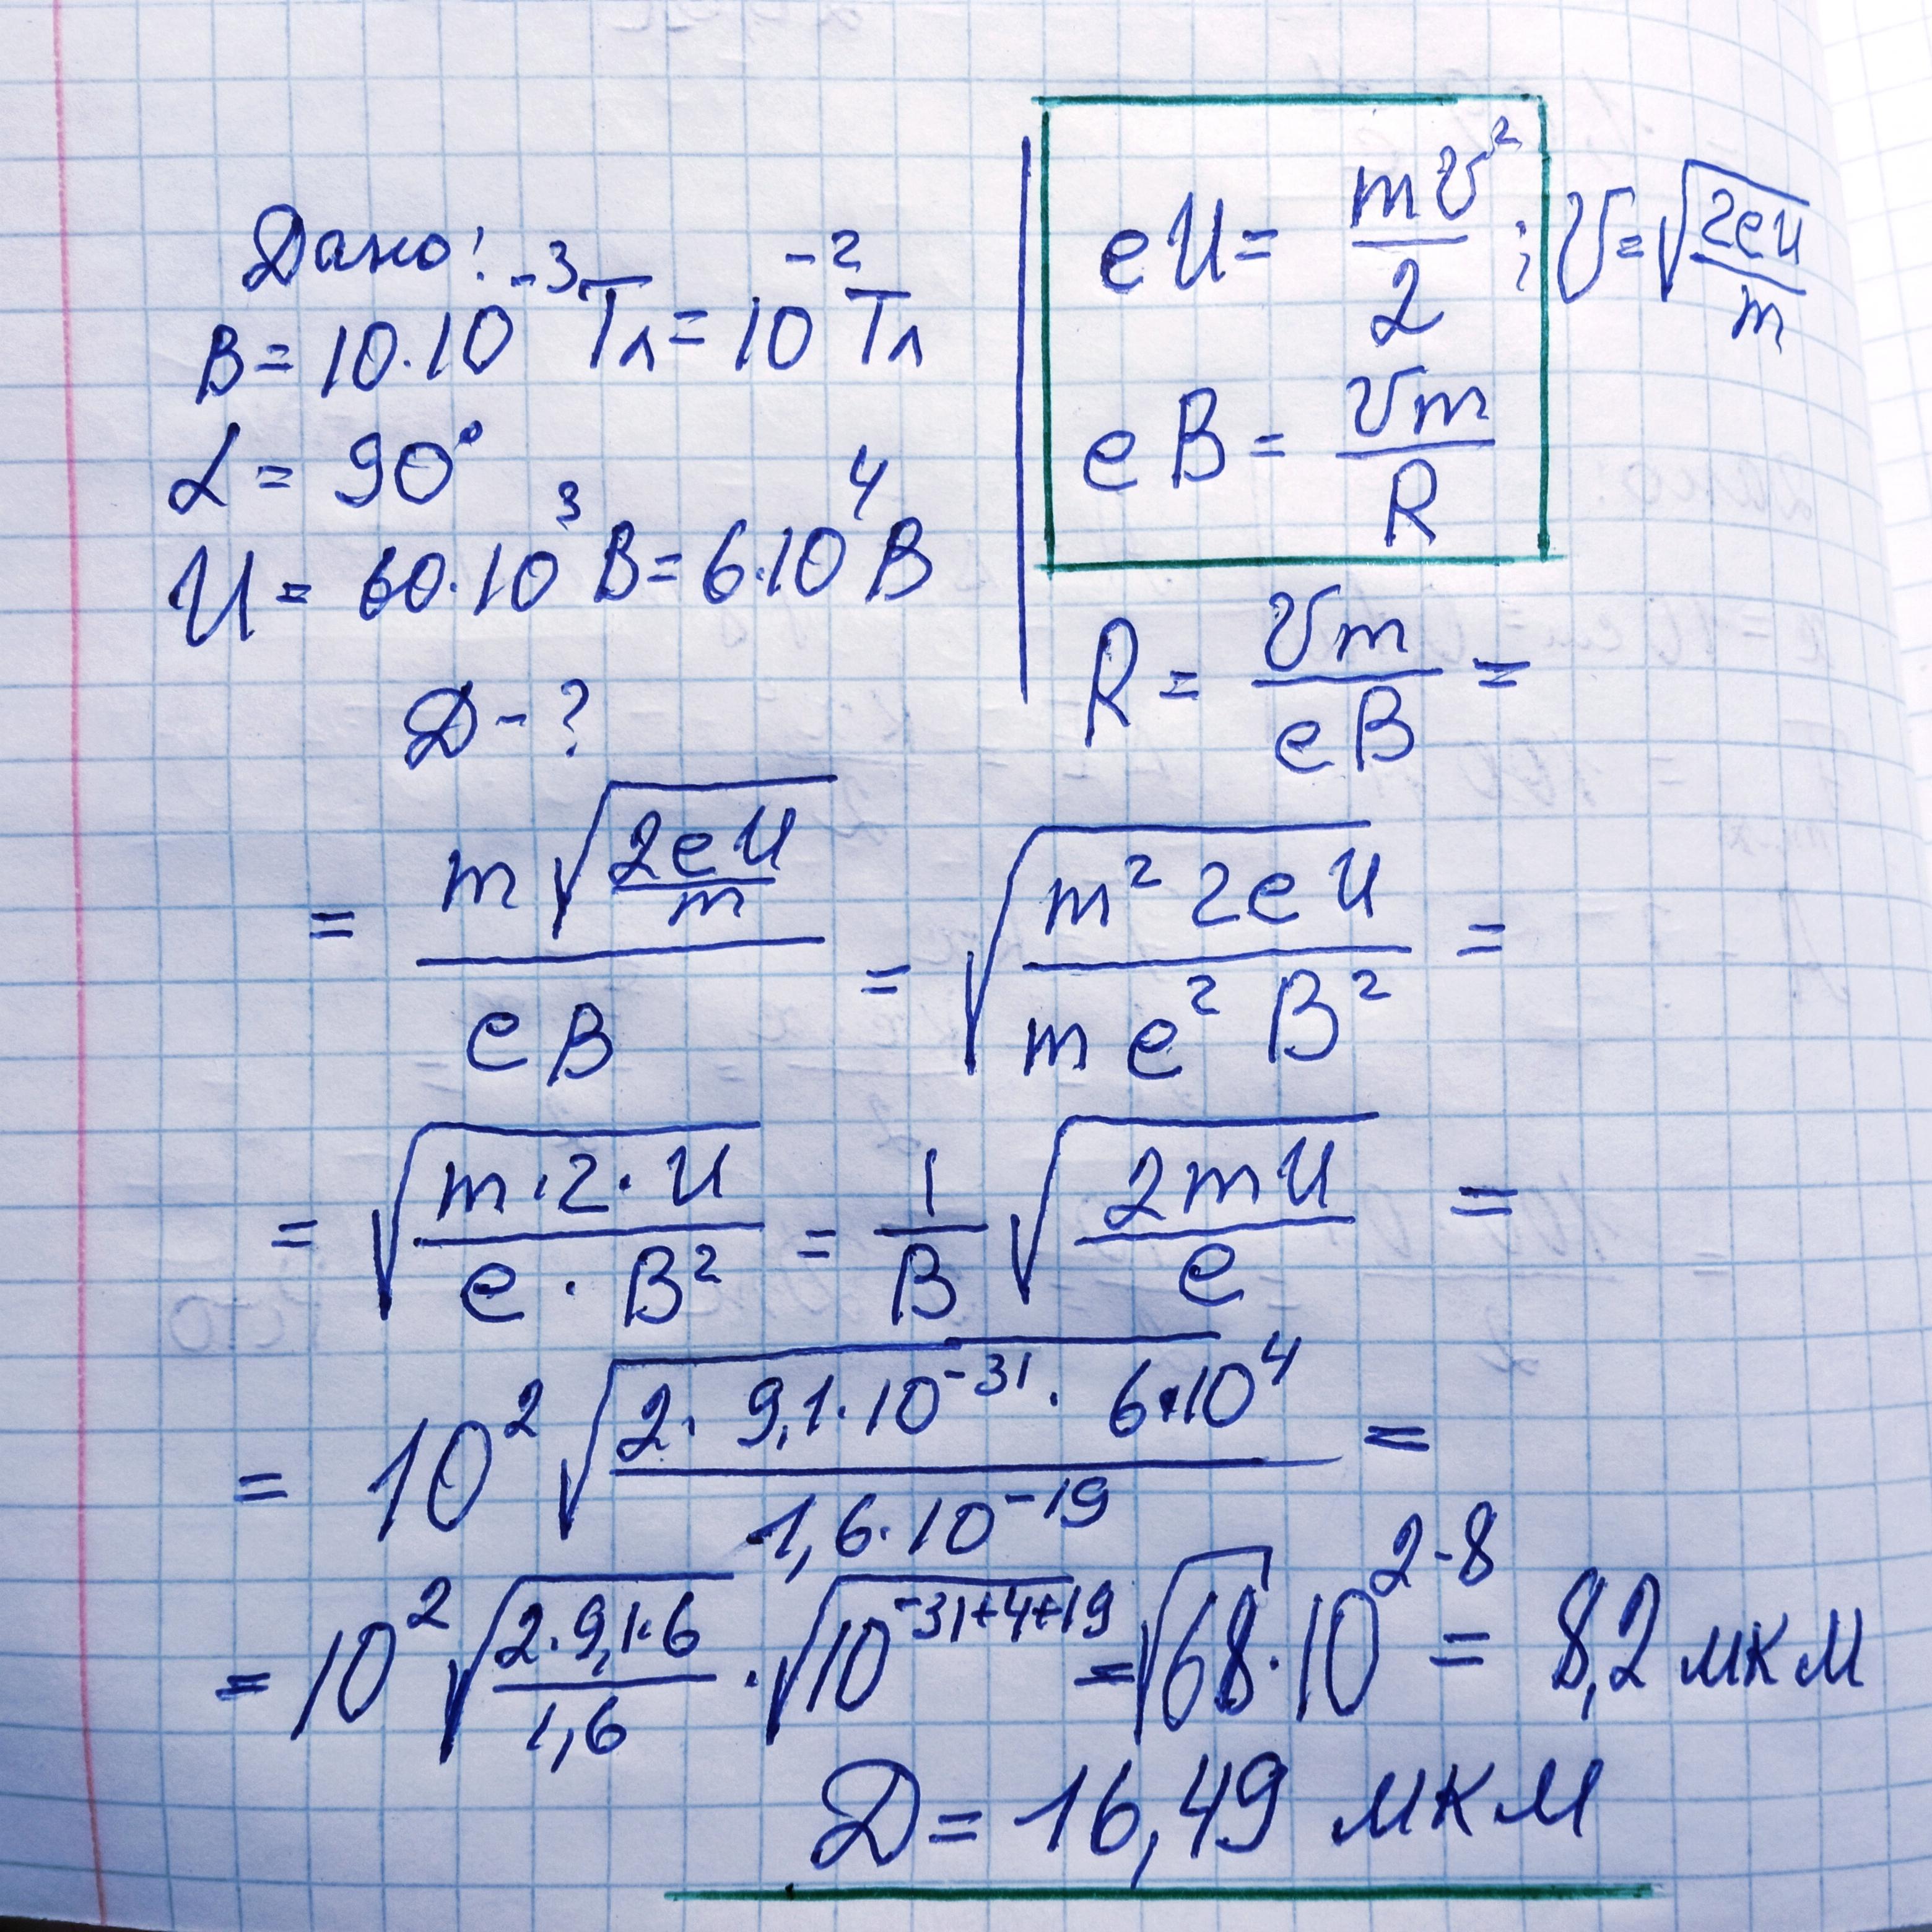 Дано:
B = 10·10⁻³ Тл = 10⁻² Тл
α = 90°
U = 60·10³ В = 6·10⁴ В
Д - ?
eU = mv²/2 ; v = √(2eU/m)
eB = vm/R
R = vm/eB =
= m√(2eU/m)/eB = √(m²2eU/me²B²) =
= √(m·2·U/e·B²) = 1/B √(2mU/e) =
= 10² √(2·9,1·10⁻³¹·6·10⁴/1,6·10⁻¹⁹) =
= 10² √(2·9,1·6/1,6) · √(10⁻³¹⁺⁴⁺¹⁹) = √68·10²⁻⁸ = 8,2 мкм
Д = 16,49 мкм